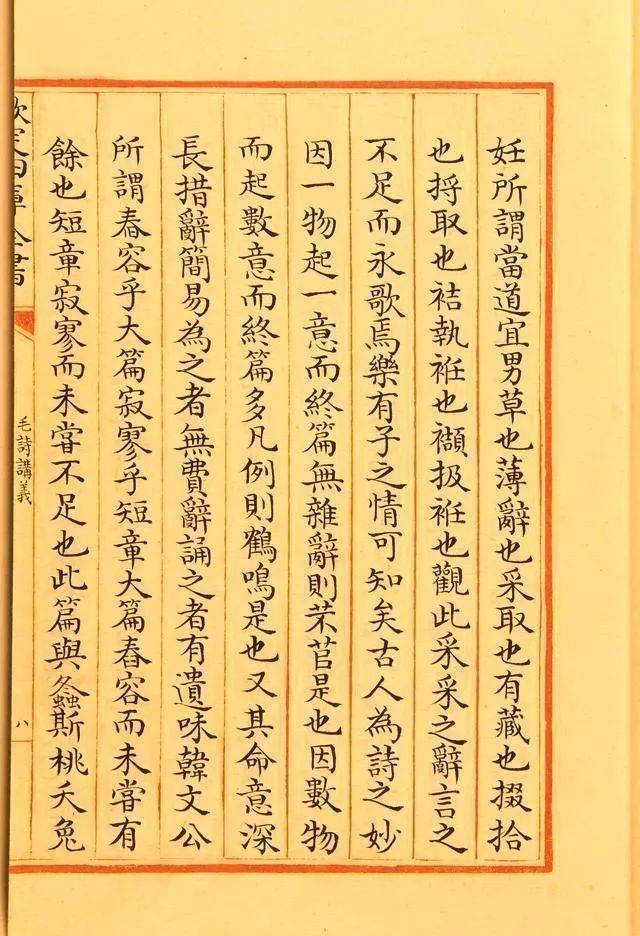 妊所謂當道宜男草也薄辭也采取也有藏也掇拾
也捋取也袺執衽也襭扱衽也觀此采采之辭言之
不足而永歌焉樂有子之情可知矣古人為詩之妙
因一物起一意而終篇無雜辭則芣苢是也因數物
而起數意而終篇多凡例則鶴鳴是也又其命意深
長措辭簡易為之者無費辭誦之者有遺味韓文公
所謂舂容乎大篇寂寥乎短章大篇舂容而未嘗有
餘也短章寂寥而未嘗不足也此篇與螽斯桃夭兔
欽定四庫全書
毛詩講義
八